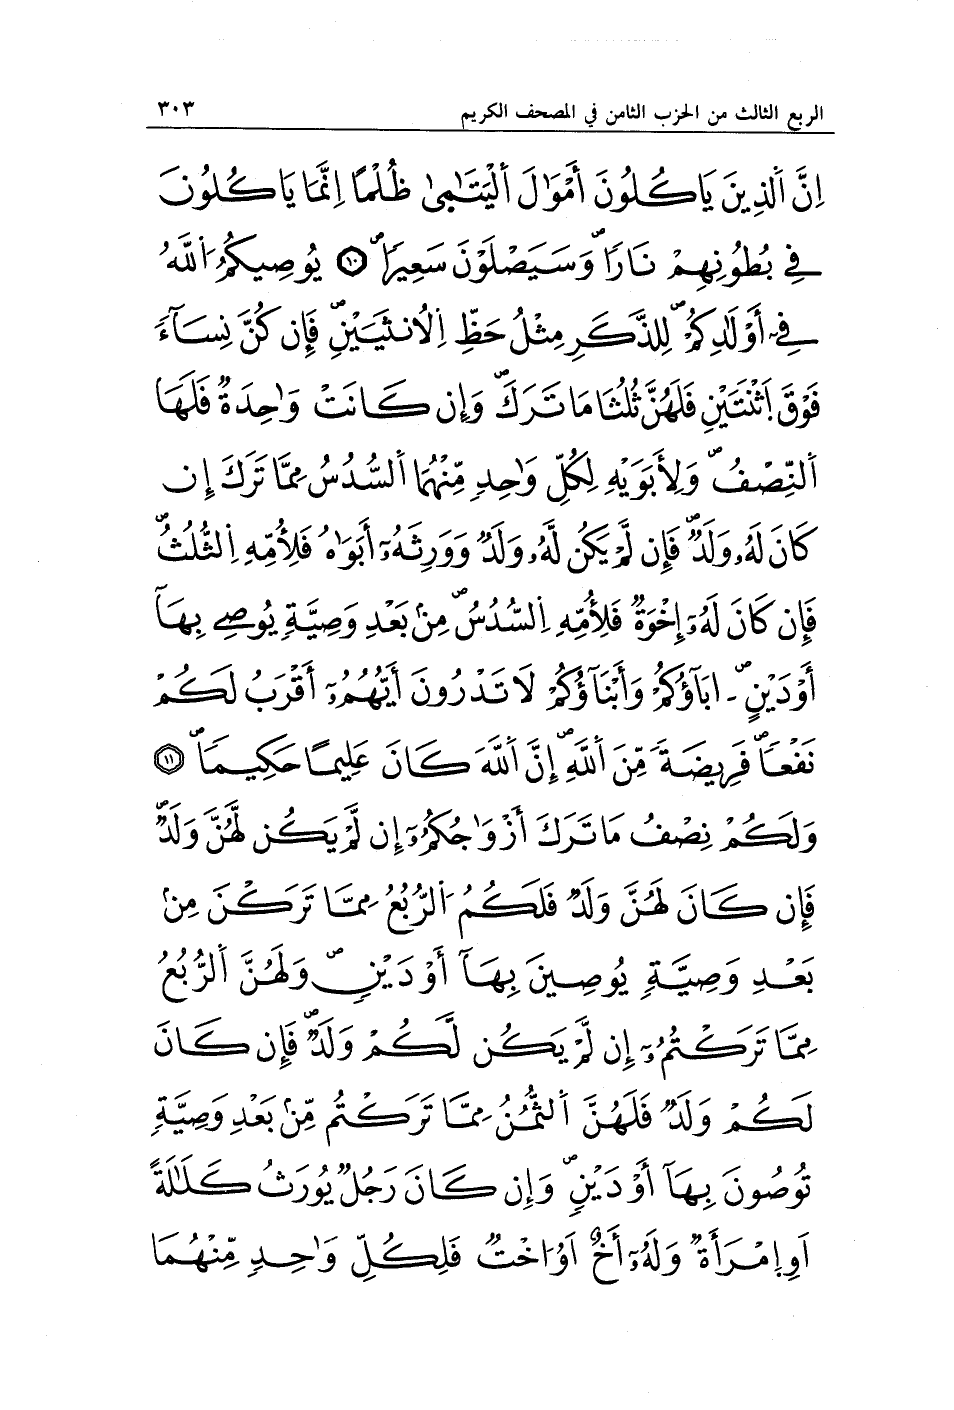 الربع الثالث من الحزب الثامن في المصحف الكريم ٣٠٣
اِنَّ اَ۬لذِينَ يَاكُلُونَ أَمْوَٰلَ اَ۬لْيَتَٰم۪ىٰ ظُلْماً اِنَّمَا يَاكُلُونَ
فِے بُطُونِهِمْ نَاراًۖ وَسَيَصْلَوْنَ سَعِيراًۖ ١٠ يُوصِيكُمُ اُ۬للَّهُ
فِےٓ أَوْلَٰدِكُمْۖ لِلذَّكَرِ مِثْلُ حَظِّ اِ۬لُانثَيَيْنِۖ فَإِن كُنَّ نِسَآءٗ
فَوْقَ اَ۪ثْنَتَيْنِ فَلَهُنَّ ثُلُثَا مَا تَرَكَۖ وَإِن كَانَتْ وَٰحِدَةٞ فَلَهَا
اَ۬لنِّصْفُۖ وَلِأَبَوَيْهِ لِكُلِّ وَٰحِدٖ مِّنْهُمَا اَ۬لسُّدُسُ مِمَّا تَرَكَ إِن
كَانَ لَهُۥ وَلَدٞۖ فَإِن لَّمْ يَكُن لَّهُۥ وَلَدٞ وَوَرِثَهُۥٓ أَبَوَٰهُ فَلِأُمِّهِ اِ۬لثُّلُثُۖ
فَإِن كَانَ لَهُۥٓ إِخْوَةٞ فَلِأُمِّهِ اِ۬لسُّدُسُۖ مِنۢ بَعْدِ وَصِيَّةٖ يُوصِے بِهَآ
أَوْ دَيْنٍۖ ـ اٰبَآؤُكُمْ وَأَبْنَآؤُكُمْ لَا تَدْرُونَ أَيُّهُمُۥٓ أَقْرَبُ لَكُمْ
نَفْعاًۖ فَرِيضَةٗ مِّنَ اَ۬للَّهِۖ إِنَّ اَ۬للَّهَ كَانَ عَلِيماً حَكِيماًۖ ١١
وَلَكُمْ نِصْفُ مَا تَرَكَ أَزْوَٰجُكُمُۥٓ إِن لَّمْ يَكُن لَّهُنَّ وَلَدٞۖ
فَإِن كَانَ لَهُنَّ وَلَدٞ فَلَكُمُ اُ۬لرُّبُعُ مِمَّا تَرَكْنَ مِنۢ
بَعْدِ وَصِيَّةٖ يُوصِينَ بِهَآ أَوْ دَيْنٖۖ وَلَهُنَّ اَ۬لرُّبُعُ
مِمَّا تَرَكْتُمُۥٓ إِن لَّمْ يَكُن لَّكُمْ وَلَدٞۖ فَإِن كَانَ
لَكُمْ وَلَدٞ فَلَهُنَّ اَ۬لثُّمُنُ مِمَّا تَرَكْتُم مِّنۢ بَعْدِ وَصِيَّةٖ
تُوصُونَ بِهَآ أَوْ دَيْنٖۖ وَإِن كَانَ رَجُلٞ يُورَثُ كَلَٰلَةً
اَوِ اِ۪مْرَأَةٞ وَلَهُۥٓ أَخٌ اَوُ اخْتٞ فَلِكُلِّ وَٰحِدٖ مِّنْهُمَا